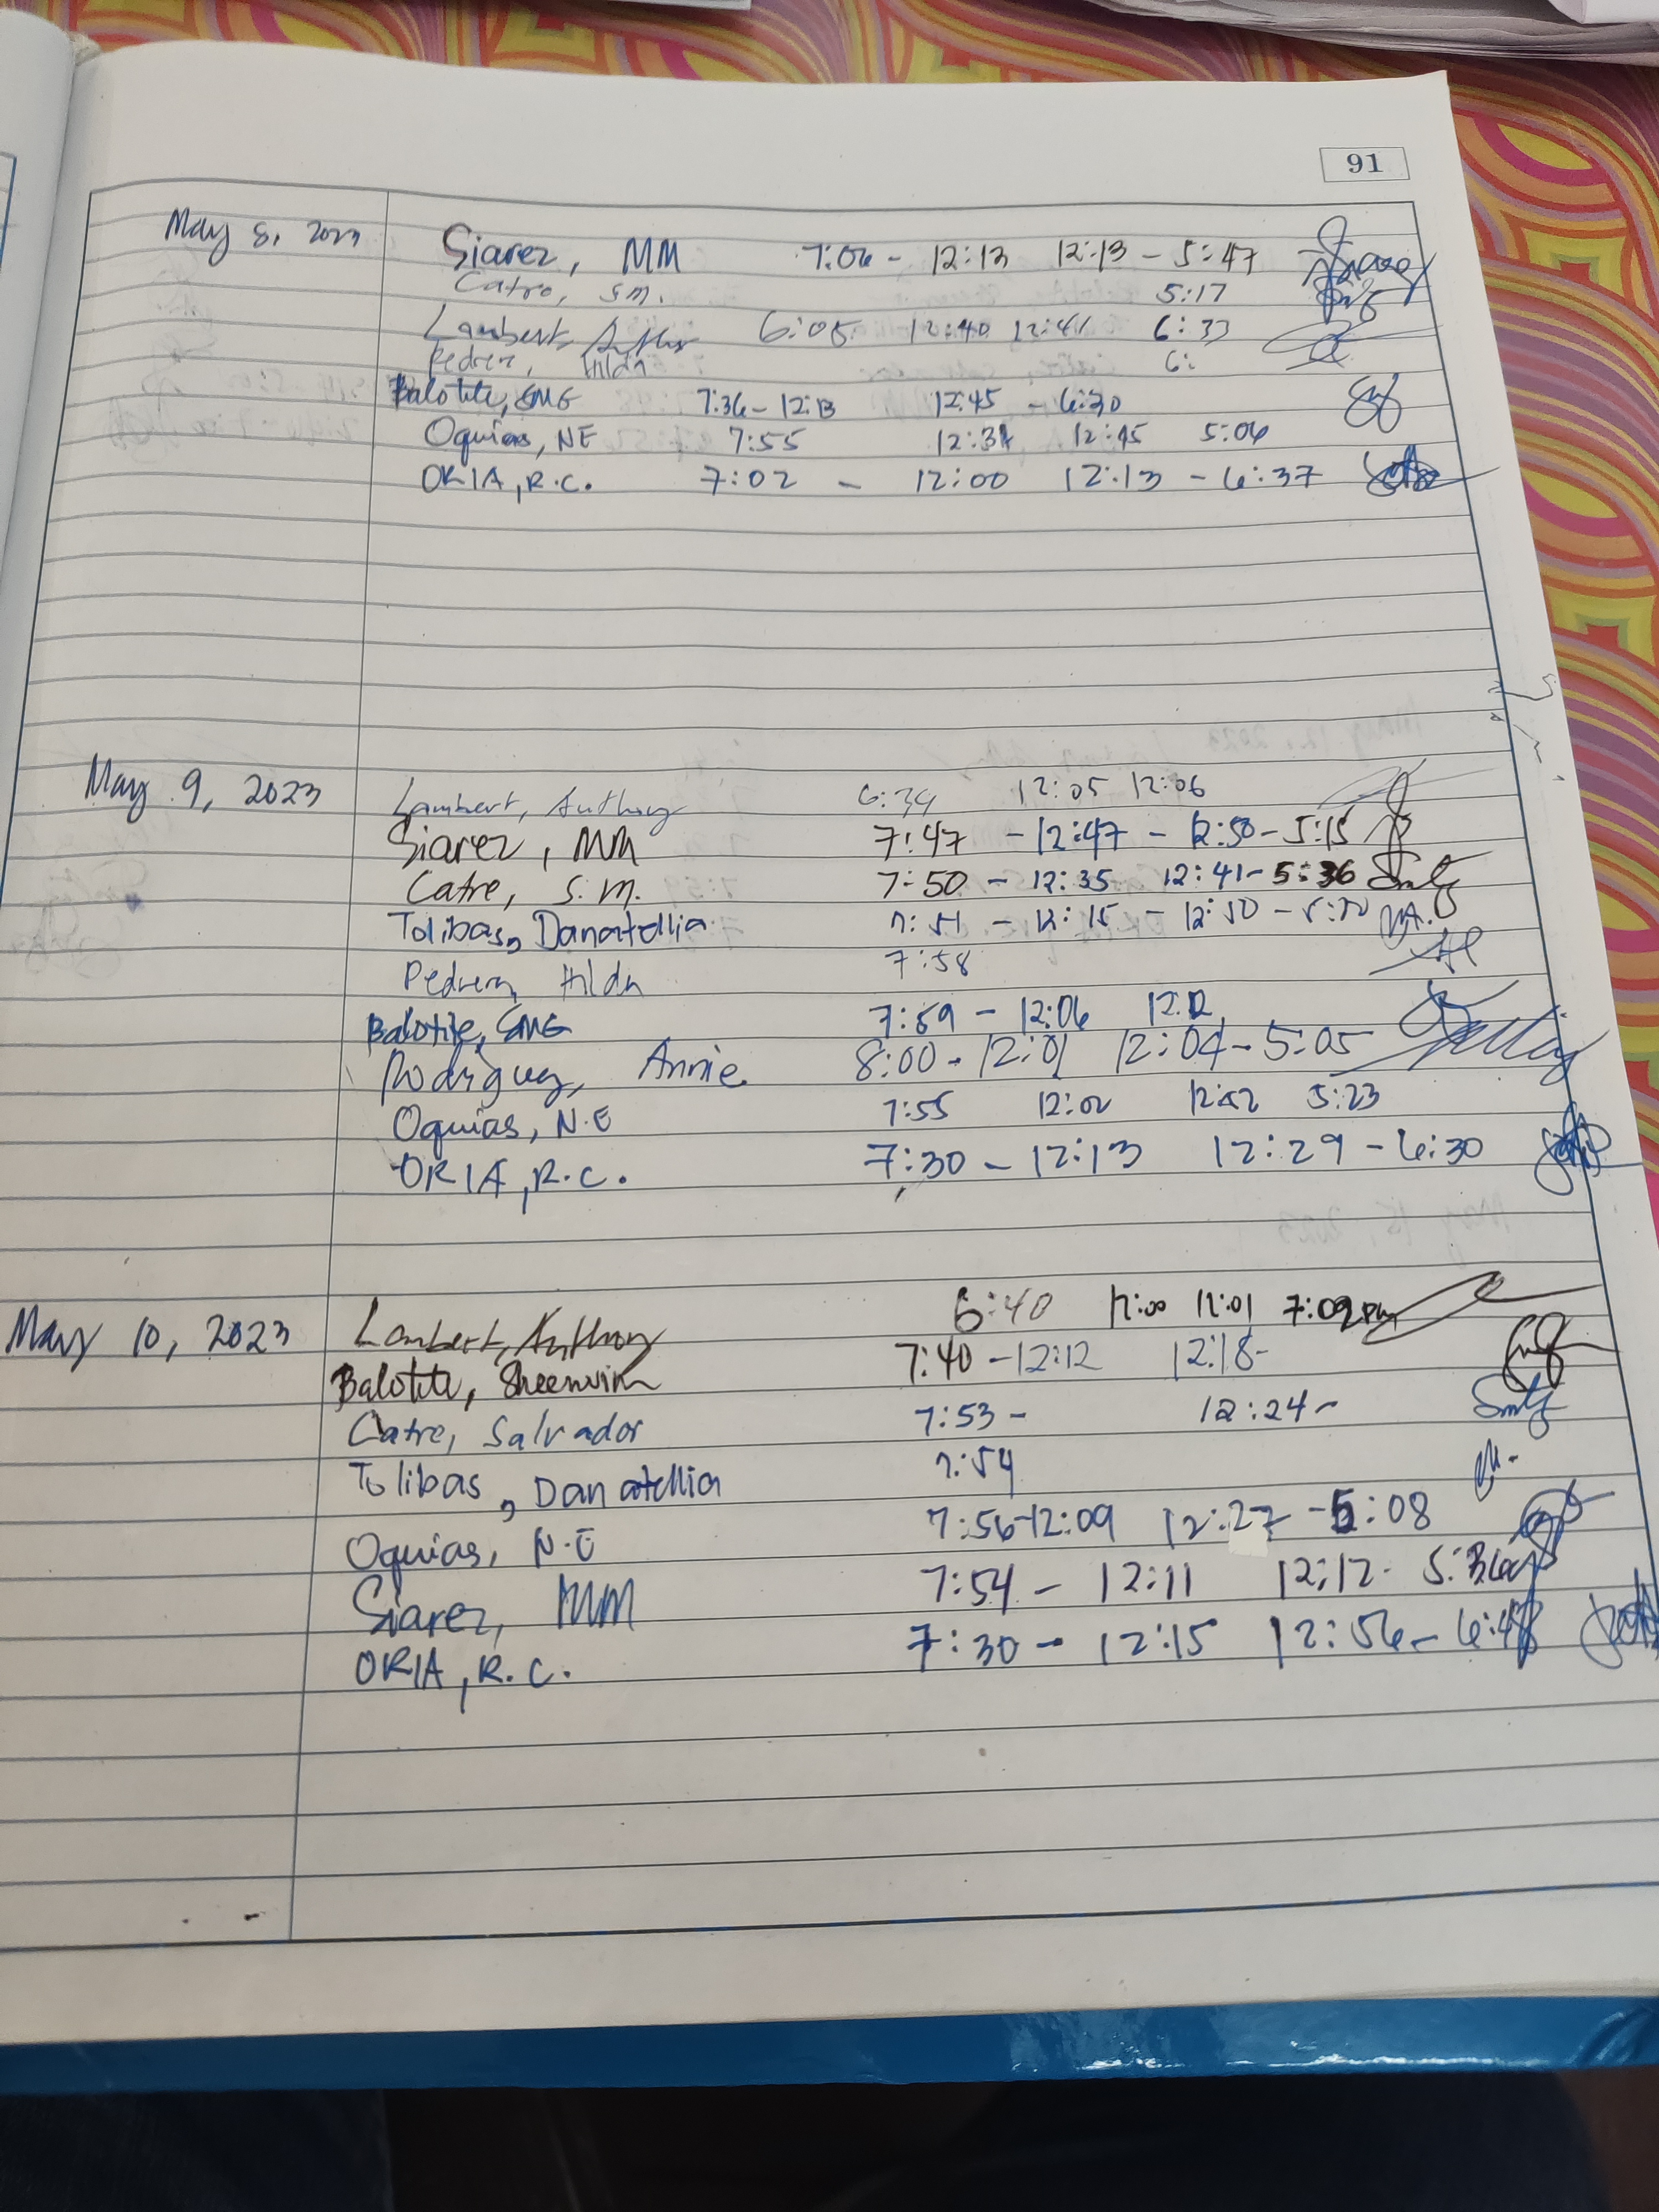 91
May 8, 2023
Siarez, MM 7:06 - 12:13 12:13 - 5:47
Catre, S.M. 5:17
Lambert, Anthony 6:05 12:40 12:41 6:33
Pedrera, Hilda 6:
Balotite, SMG 7:36 - 12:13 12:45 - 6:30
Oquias, NE 7:55 12:34 12:45 5:06
ORIA, R.C. 7:02 - 12:00 12:13 - 6:37
May 9, 2023
Lambert, Anthony 6:34 12:05 12:06
Siarez, MM 7:47 - 12:47 - 12:50 - 5:15
Catre, S.M. 7:50 - 12:35 12:41 - 5:36
Tolibas, Danatellia 7:51 - 12:15 - 12:50 - 5:30
Pedrera, Hilda 7:58
Balotite, SMG 7:59 - 12:06 12:12
Rodriguez, Annie 8:00 - 12:01 12:04 - 5:05
Oquias, N.E 7:55 12:02 12:52 5:23
ORIA, R.C. 7:30 - 12:13 12:29 - 6:30
May 10, 2023
Lambert, Anthony 6:40 12:00 12:01 7:09 PM
Balotite, Sheenvim 7:40 - 12:12 12:18 -
Catre, Salvador 7:53 - 12:24 -
Tolibas, Danatellia 7:54
Oquias, N.E 7:56 - 12:09 12:27 - 5:08
Siarez, MM 7:54 - 12:11 12:12 - 5:36
ORIA, R.C. 7:30 - 12:15 12:56 - 6:48